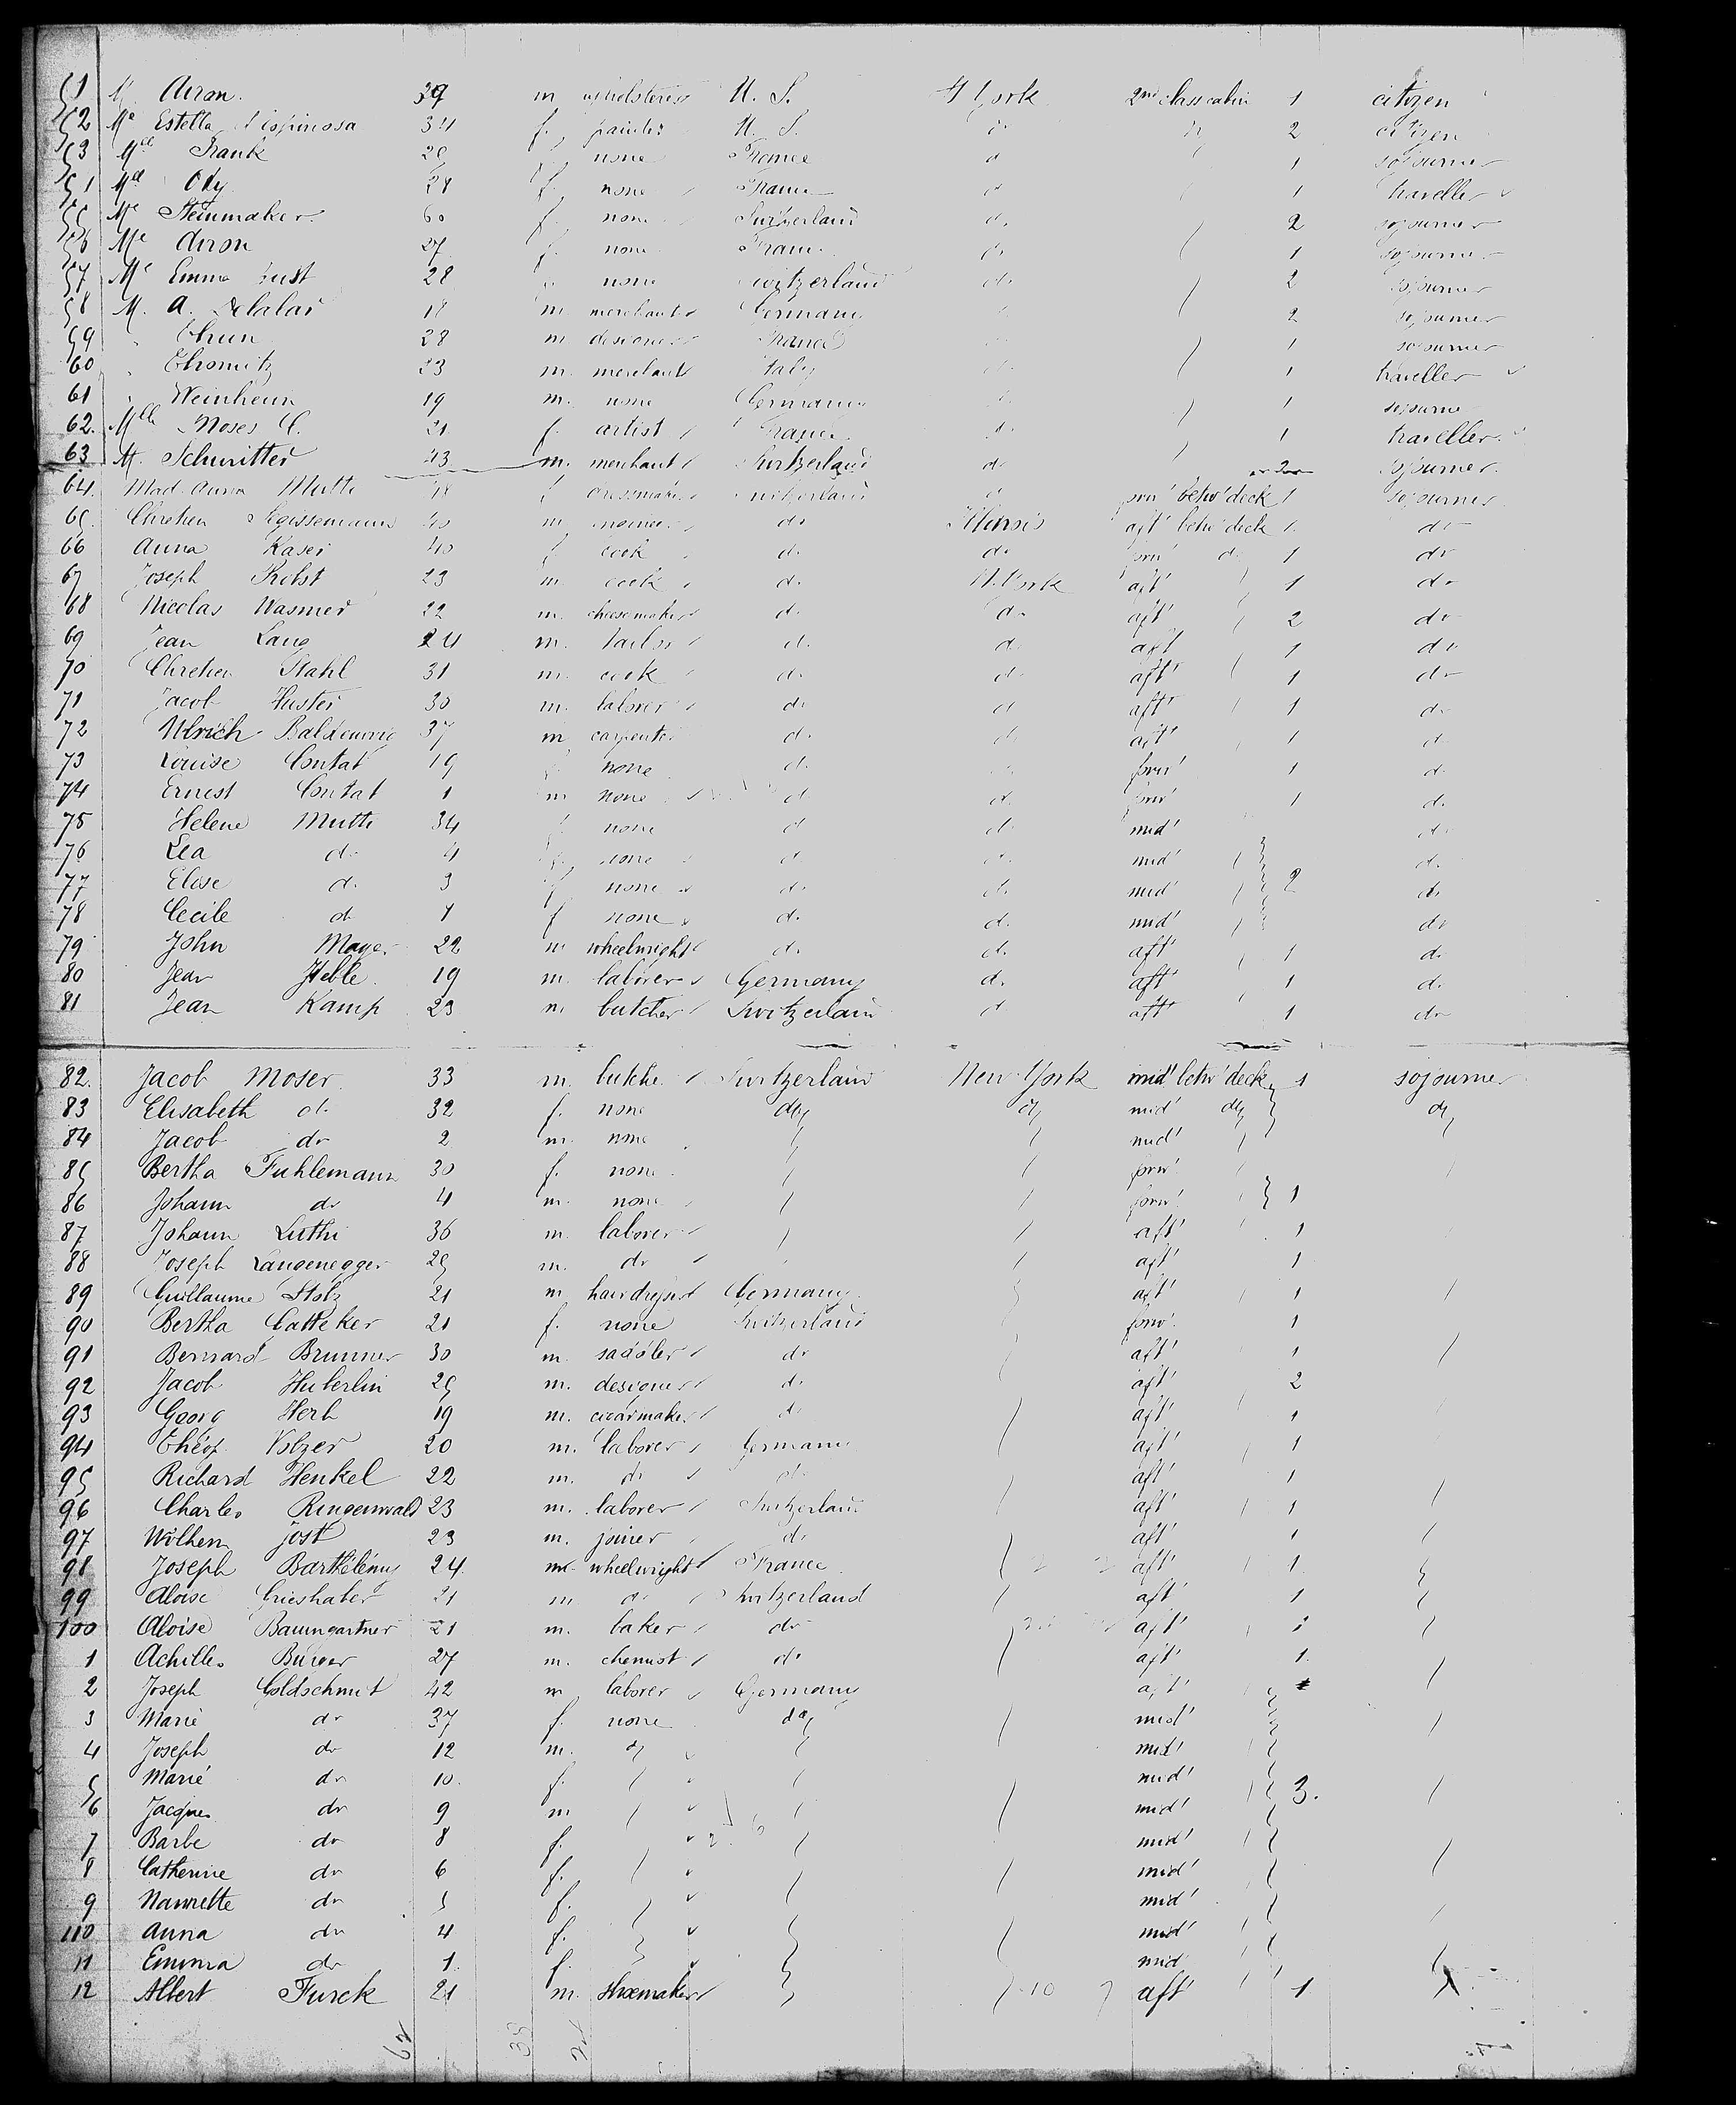 51 M. Airon. 39 m upholsterer U. S. N York 2nd class cabin 1 citizen
52 Me Estella 34 f. painter U. S. d. 2 citizen
53 Mlle Frank 29 none France d 1 sojourner
54 Md Ody 28 f. none France d 1 traveller
55 Me Steinmaker 60 f. none Switzerland d. 2 sojourner
56 Me Airon 27 f. none France d. 1 sojourner
57 Me Emma 28 none Switzerland d. 2 sojourner
58 M. A. 18 m merchant Germany 2 sojourner
59 Chun 28 m designer France 1 sojourner
60 Chromitz 23 m. merchant Italy d. 1 traveller
61 Weinheim 19 m. none Germany 1 sojourner
62. Mlle Moses C. 21 f. artist France d. 1 traveller.
63 M. Schuritter 43 m. merchant Switzerland d. sojourner.
64. Mad. Anna Mutti 18 f dressmaker Switzerland d forw' betw' deck 1 sojourner
65. Chretien 40 m do Illinois aft' betw' deck 1. do
66 Anna Kaser 40 f cook d. do forw' d. 1 do
67 Joseph Probst 23 m cook d. N. York aft' 1 do
68 Nicolas Wasmer 22 m. cheesemaker d. do aft' 2 do
69 Jean Lang 24 m. tailor d. d. aft 1 do
70 Chretien Stahl 31 m. cook d. d. aft' 1 do
71 Jacob Huster 30 m. laborer do d aft' 1 do
72 Ulrich 37 m carpenter d. d. aft' 1 d
73 Louise Contat 19 none d. forw' 1 d.
74 Ernest Contat 1 m none d d. forw' 1 d.
75 Helene Mutti 34 f none d d. mid' d.
76 Lea do 4 none d. d. mid' d.
77 Elise d. 3 f none d. d. mid' 2 do
78 Cecile d. 1 f none d. d. mid' do
79 John Mayer 22 m wheelwright d. d. aft' 1 d.
80 Jean Heble. 19 m. laborer Germany d. aft' 1 d.
81 Jean Kamp 23 m butcher Switzerland d aft' 1 do
82. Jacob Moser 33 m. butcher Switzerland New-York mid' betw' deck 1 sojourner
83 Elisabeth d. 32 f. none do do mid' do do
84 Jacob do 2 m none mid'
85 Bertha Fuhlemann 30 f. none forw'
86 Johann do 4 m. none forw' 1
87 Johann Luthi 36 m. laborer aft' 1
88 Joseph Langenegger 29 m. do aft' 1
89 Guillaume Stolz 21 m hairdresser Germany aft' 1
90 Bertha Catteker 21 f. none Switzerland forw' 1
91 Bernard Brunner 30 m. saddler do aft' 1
92 Jacob Huberlin 29 m. designer d. aft' 2
93 Georg Herb 19 m. cigarmaker d. aft' 1
94 Théop. Volzer 20 m. laborer Germany aft' 1
95 Richard Henkel 22 m. do do aft' 1
96 Charles Ringenwald 23 m. laborer Switzerland aft' 1
97 Wilhem jost 23 m. joiner do aft' 1
98 Joseph Barthélémy 24. m wheelwright France aft' 1
99 Aloise Grieshaber 21 m d. Switzerland aft' 1
100 Aloise Baumgartner 21 m. baker do aft' 1
1 Achilles Burger 27 m. chemist do aft' 1.
2 Joseph Goldschmit 42 m laborer Germany aft'
3 Marie do 37 f. none do mid'
4 Joseph do 12 m. do mid'
5 Marie do 10. f. mid'
6 Jacques do 9 m mid' 3.
7 Barbe do 8 f. mid'
8 Catherine do 6 f. mid'
9 Nannette do 5 f. mid'
110 Anna do 4 f. mid'
11 Emma do 1. f. mid
12 Albert Furck 21 m. shoemaker 10 aft' 1
62 38